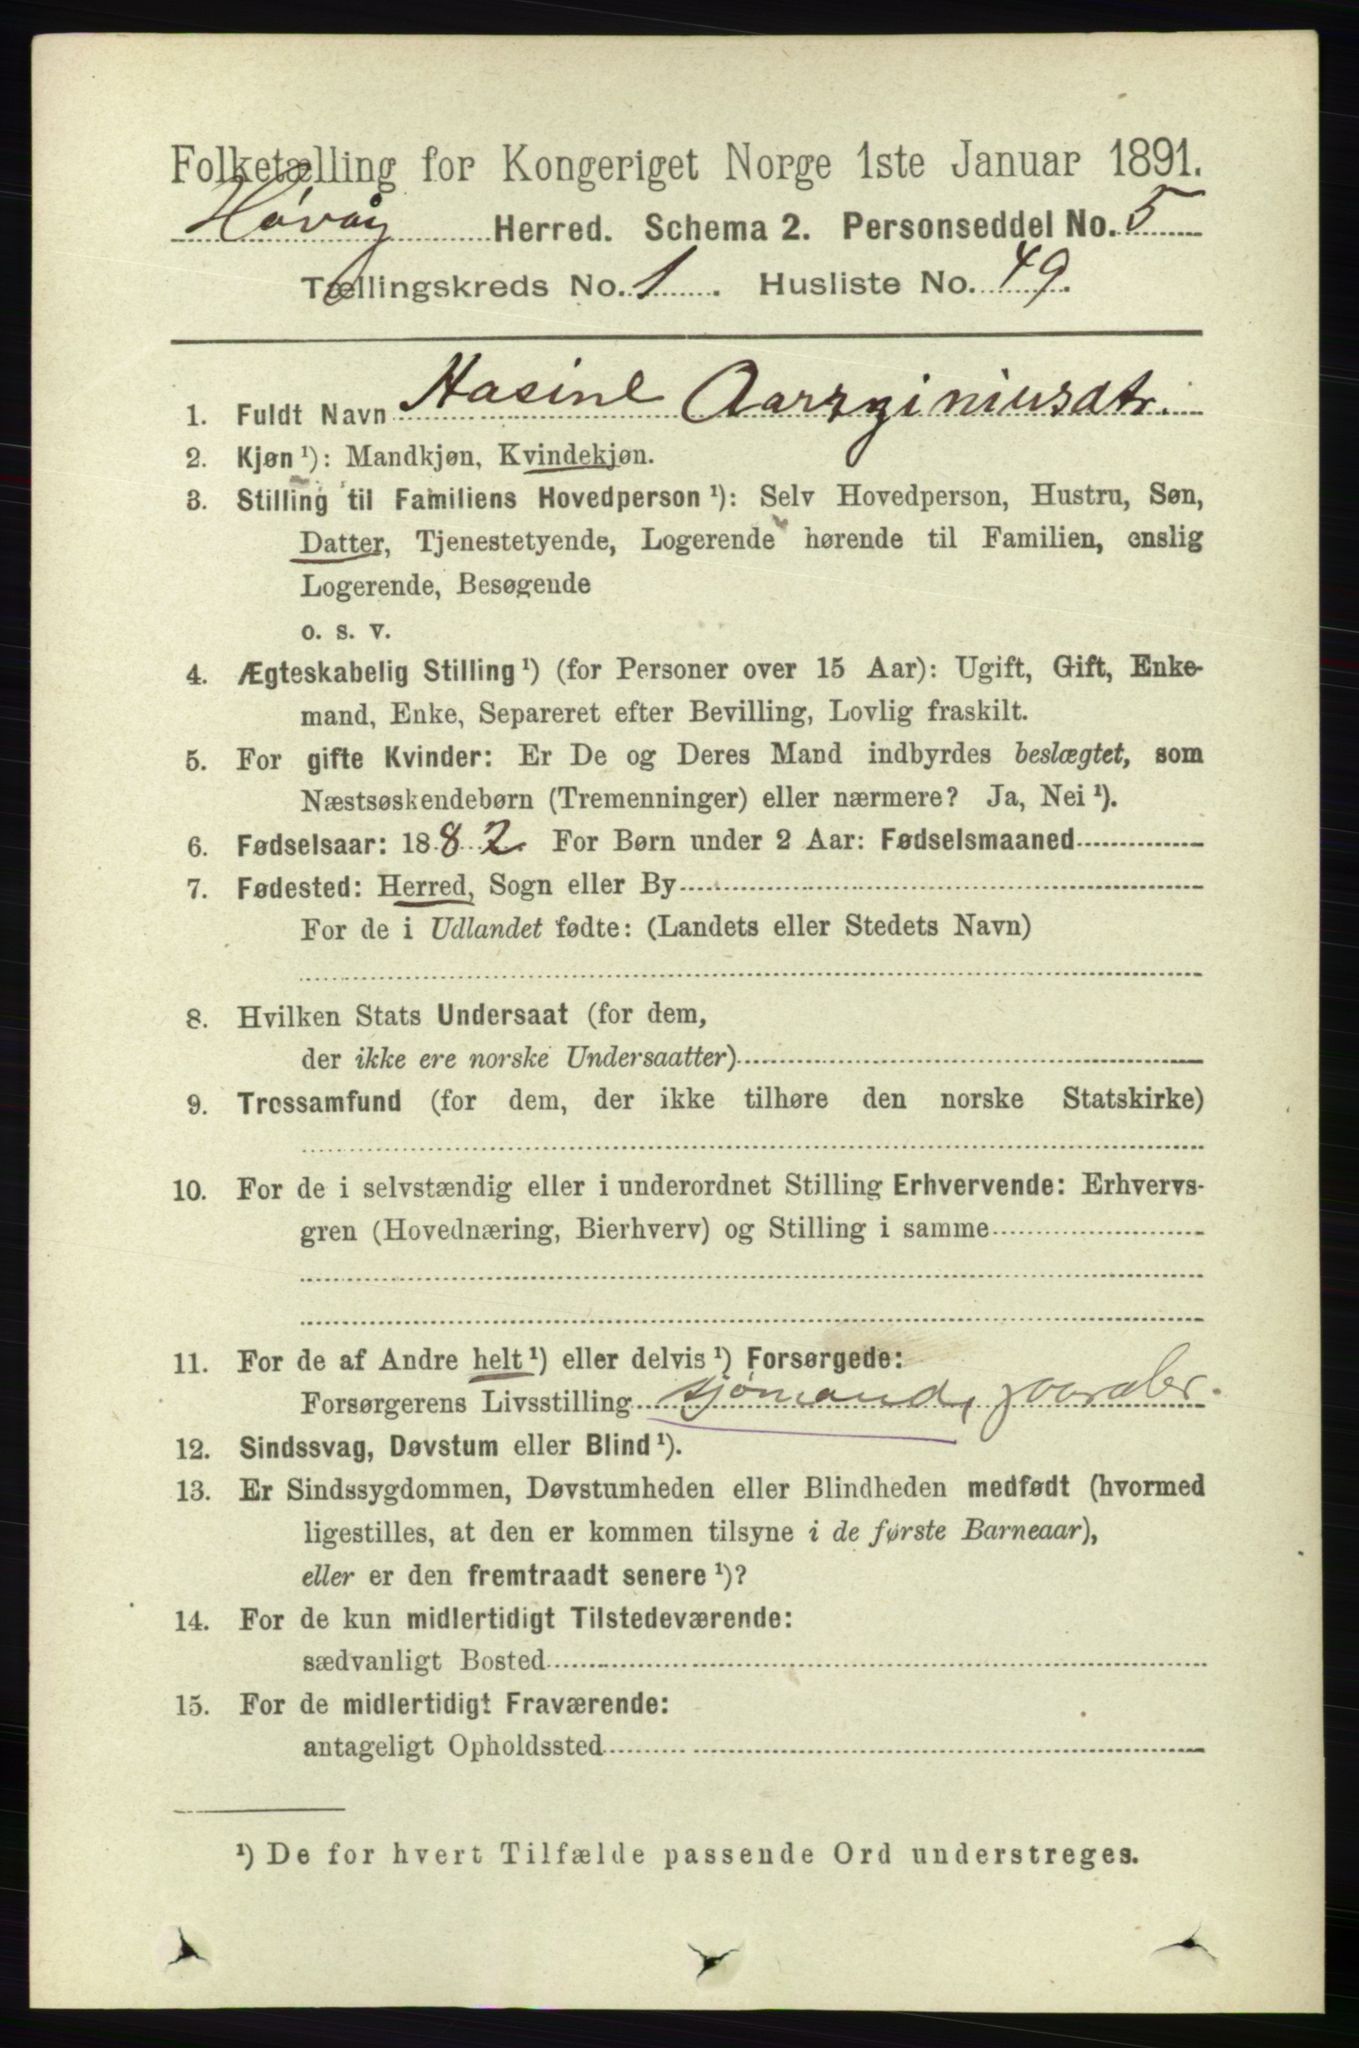 Folketælling for Kongeriget Norge 1ste Januar 1891.
Høvåg Herred. Schema 2. Personseddel No. 5
Tællingskreds No. 1. Husliste No. 49.
1. Fuldt Navn Hasine
2. Kjøn ¹): Mandkjøn, Kvindekjøn.
3. Stilling til Familiens Hovedperson ¹): Selv Hovedperson, Hustru, Søn,
Datter, Tjenestetyende, Logerende hørende til Familien, enslig
Logerende, Besøgende
o. s. v.
4. Ægteskabelig Stilling ¹) (for Personer over 15 Aar): Ugift, Gift, Enke-
mand, Enke, Separeret efter Bevilling, Lovlig fraskilt.
5. For gifte Kvinder: Er De og Deres Mand indbyrdes beslægtet, som
Næstsøskendebørn (Tremenninger) eller nærmere? Ja, Nei ¹).
6. Fødselsaar: 1882. For Børn under 2 Aar: Fødselsmaaned
7. Fødested: Herred, Sogn eller By
For de i Udlandet fødte: (Landets eller Stedets Navn)
8. Hvilken Stats Undersaat (for dem,
der ikke ere norske Undersaatter)
9. Trossamfund (for dem, der ikke tilhøre den norske Statskirke)
10. For de i selvstændig eller i underordnet Stilling Erhvervende: Erhvervs-
gren (Hovednæring, Bierhverv) og Stilling i samme
11. For de af Andre helt ¹) eller delvis ¹) Forsørgede:
Forsørgerens Livsstilling sjømand,
12. Sindssvag, Døvstum eller Blind ¹).
13. Er Sindssygdommen, Døvstumheden eller Blindheden medfødt (hvormed
ligestilles, at den er kommen tilsyne i de første Barneaar),
eller er den fremtraadt senere ¹)?
14. For de kun midlertidigt Tilstedeværende:
sædvanligt Bosted
15. For de midlertidigt Fraværende:
antageligt Opholdssted
¹) De for hvert Tilfælde passende Ord understreges.